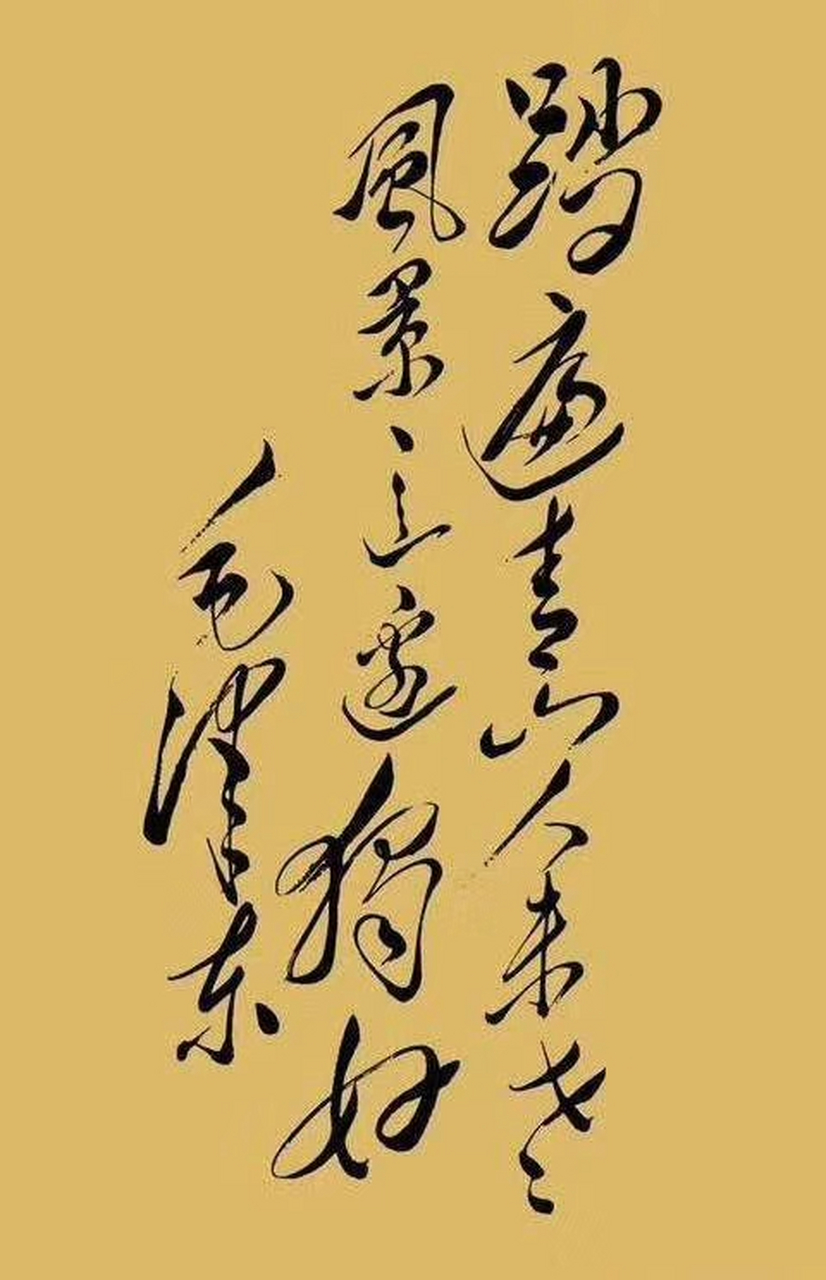 踏遍青山人未老
風景這邊獨好
毛澤东